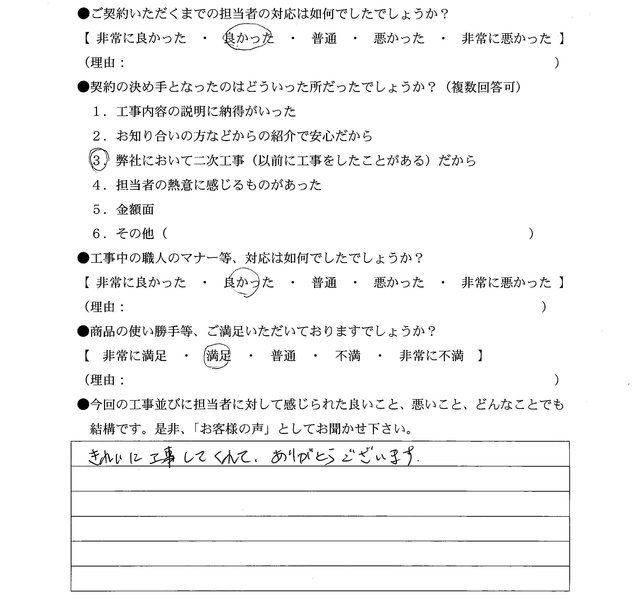 ●ご契約いただくまでの担当者の対応は如何でしたでしょうか？
【 非常に良かった ・ 良かった ・ 普通 ・ 悪かった ・ 非常に悪かった 】
（理由： ）
●契約の決め手となったのはどういった所だったでしょうか？（複数回答可）
１．工事内容の説明に納得がいった
２．お知り合いの方などからの紹介で安心だから
３．弊社において二次工事（以前に工事をしたことがある）だから
４．担当者の熱意に感じるものがあった
５．金額面
６．その他（ ）
●工事中の職人のマナー等、対応は如何でしたでしょうか？
【 非常に良かった ・ 良かった ・ 普通 ・ 悪かった ・ 非常に悪かった 】
（理由： ）
●商品の使い勝手等、ご満足いただいておりますでしょうか？
【 非常に満足 ・ 満足 ・ 普通 ・ 不満 ・ 非常に不満 】
（理由： ）
●今回の工事並びに担当者に対して感じられた良いこと、悪いこと、どんなことでも
結構です。是非、「お客様の声」としてお聞かせ下さい。
きれいに工事してくれて、ありがとうございます.